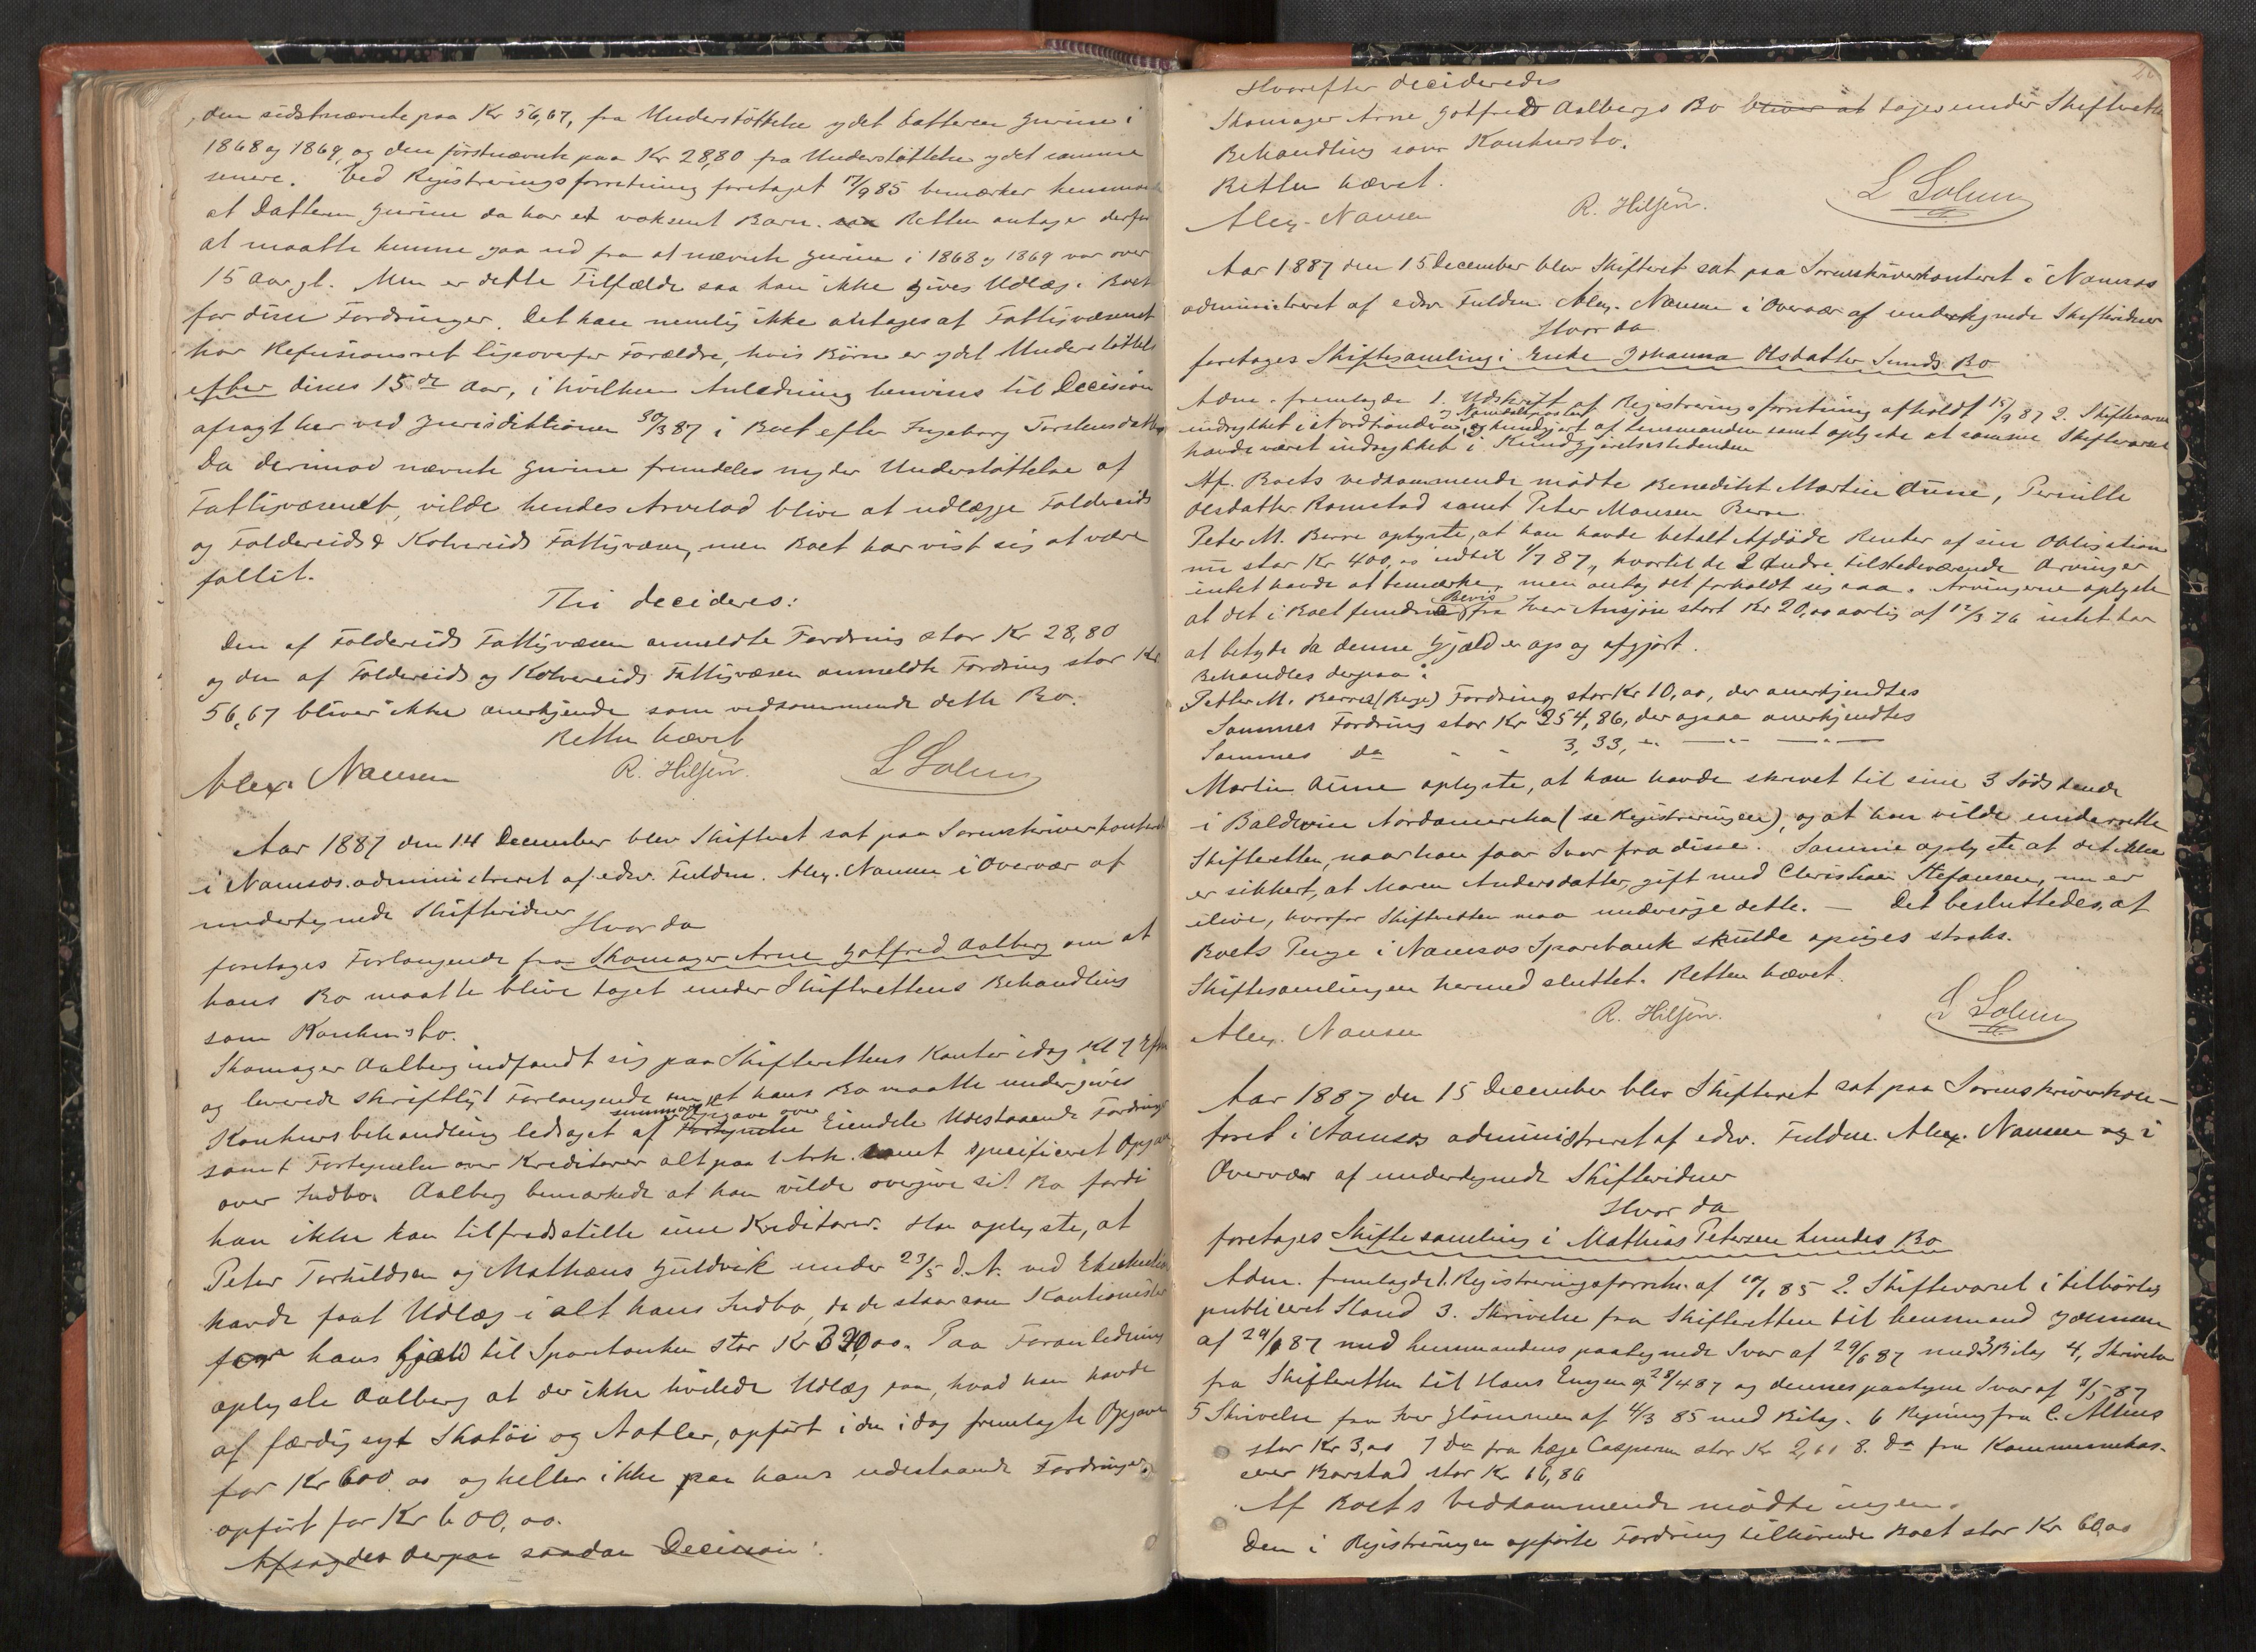 den sidstnævnte paa Kr 56,67, fra Understøttelse ydet Datteren Gurine i
1868 og 1869, og den førstnævnte paa Kr 28,80 fra Understøttelse ydet samme
senere. Ved Registreringsforretning foretaget 17/9 85 bemærker
at Datteren Gurine da har et voksent Barn. Retten antager derfor
at maatte kunne gaa ud fra at nævnte Gurine i 1868 og 1869 var over
15 Aar gl. Men er dette Tilfælde saa kan ikke gives Udlæg i Boet
for disse Fordringer. Det kan nemlig ikke antages at Fattigvæsenet
har Refusionsret ligeoverfor Forældre, hvis Børn er ydet Understøttelse
efter disses 15de Aar, i hvilken Anledning henvises til Decision
afsagt her ved Jurisdiktionen 30/3 87 i Boet efter Ingeborg Torstensdatter
Da derimod nævnte Gurine fremdeles nyder Understøttelse af
Fattigvæsenet, vilde hendes Arvelod blive at udlægge Foldereids
og Foldereids & Kolvereids Fattigvæsen, men Boet har vist sig at være
fallit.
Thi decideres:
Den af Foldereids Fattigvæsen anmeldte Fordring stor Kr 28,80
og den af Foldereids og Kolvereids Fattigvæsen anmeldte Fordring stor Kr
56,67 bliver ikke anerkjende som vedkommende dette Bo.
Retten hævet
Alex. Nansen R. Hilsen. L Solum
Aar 1887 den 14 December blev Skifteret sat paa Sorenskriverkontoret
i Namsos administreret af edsv. Fuldm. Alex. Nansen i Overvær af
undertegnede Skiftevidner
Hvor da
foretages Forlangende fra Skomager Arne Gotfred Aalberg om at
hans Bo maatte blive taget under Skifterettens Behandling
som Konkursbo.
Skomager Aalberg indfandt sig paa Skifterettens Kontor idag Kl 7 Efm
og leverede skriftligt Forlangende om at hans Bo maatte undergives
summarisk Opgave over
Konkursbehandling ledsaget af Fortegnelse Eiendele Udestaaende Fordringer
samt Fortegnelse over Kreditorer alt paa 1 Ark. samt specificeret Opgave
over Indbo. Aalberg bemærkede at han vilde overgive sit Bo fordi
han ikke kan tilfredsstille sine Kreditorer. Han oplyste, at
Peter Torkildsen og Mathæus Guldvik under 23/5 d.A. ved Exekution
havde faaet Udlæg i alt hans Indbo, da de staar som Kautionister
for hans Gjæld til Sparebanken stor Kr 320,00. Paa Foranledning
oplyste Aalberg at der ikke hvilede Udlæg paa, hvad han havde
af færdigsyt Skotøi og Aatler, opført i den idag fremlagte Opgave
for Kr 600.00 og heller ikke paa hans udestaaende Fordringer,
opført for Kr 600,00.
Afsagdes derpaa saadan Decision:
Hvorefter decideredes
Skomager Arne Gotfreds Aalbergs Bo bliver at tages under Skifterettens
Behandling som Konkursbo.
Retten hævet.
Alex. Nansen R. Hilsen. L Solum
Aar 1887 den 15 December blev Skifteret sat paa Sorenskriverkontoret i Namsos
administreret af edsv. Fuldm. Alex. Nansen i Overvær af undertegnede Skiftevidner
Hvor da
foretages Skiftesamling i Enke Johanna Olsdatter Sunds Bo
Adm. fremlagde 1. Udskrift af Registreringsforretning afholdt 15/9 87 2. Skiftevarsel
og Namdalsposten
indrykket i Nordtrønderen, og kundgjort af Lensmanden samt oplyste at samme Skiftevarsel
havde været indrykket i Kundgjørelsestidenden
Af Boets vedkommende mødte Benedikt Martin Aune, Pernille
Olsdatter Ramstad samt Peter Mausen Berre.
Peter M. Berre oplyste, at han havde betalt Afdøde Renter af sin Obligation
nu stor Kr 400,00 indtil 1/7 87, hvortil de 2 Andre tilstedeværende Arvinger
intet havde at bemærke, men antog det forholdt sig saa. Arvingerne oplyste
Bevis
at det i Boet fundne fra Iver Ansjøn stort Kr 20,00 aarlig af 12/3 76 intet har
at betyde da denne Gjæld er op og afgjort.
Behandles derpaa:
Petter M. Berres (Berge) Fordring stor Kr 10,00, der anerkjendtes
Sammes Fordring stor Kr 254,86, der ogsaa anerkjendtes
Sammes do - - 3,33, - " -
Martin Aune oplyste, at han havde skrevet til sine 3 Sødskende
i Baldwin Nordamerika (se Registreringen), og at han vilde underrette
Skifteretten, naar han faar Svar fra disse. Samme oplyste at det ikke
er sikkert, at Maren Andersdatter, gift med Christian Stefansen, nu er
ilive, hvorfor Skifteretten maa undersøge dette. — Det besluttedes, at
Boets Penge i Namsos Sparebank skulde opsiges straks.
Skiftesamlingen hermed sluttet. Retten hævet.
Alex. Nansen R. Hilsen. L Solum
Aar 1887 den 15 December blev Skifteret sat paa Sorenskriverkon-
toret i Namsos administreret af edsv. Fuldm. Alex. Nansen og i
Overvær af undertegnede Skiftevidner
Hvor da
foretages Skiftesamling i Mathias Petersen Lundes Bo
Adm. fremlagde 1. Registreringsforretn. af 85 2. Skiftevarsel i tilbørlig
publiceret Stand 3. Skrivelse fra Skifteretten til Lensmand
af 24/6 87 med Lensmandens paategnede Svar af 29/6 87 med 3 Bilag 4, Skrivelse
fra Skifteretten til Hans Engen af 28/4 87 og dennes paategne Svar af 3/5 87
5 Skrivelse fra Iver Glømmen af 4/3 85 med Bilag. 6 Regning fra C.
stor Kr 3,00 7 Do fra Læge Caspersen stor Kr 2,61 8. Do fra Kommunekas-
serer Barstad stor Kr 66,86
Af Boets Vedkommende mødte ingen.
Den i Registreringen opførte Fordring tilhørende Boet stor Kr 60,00